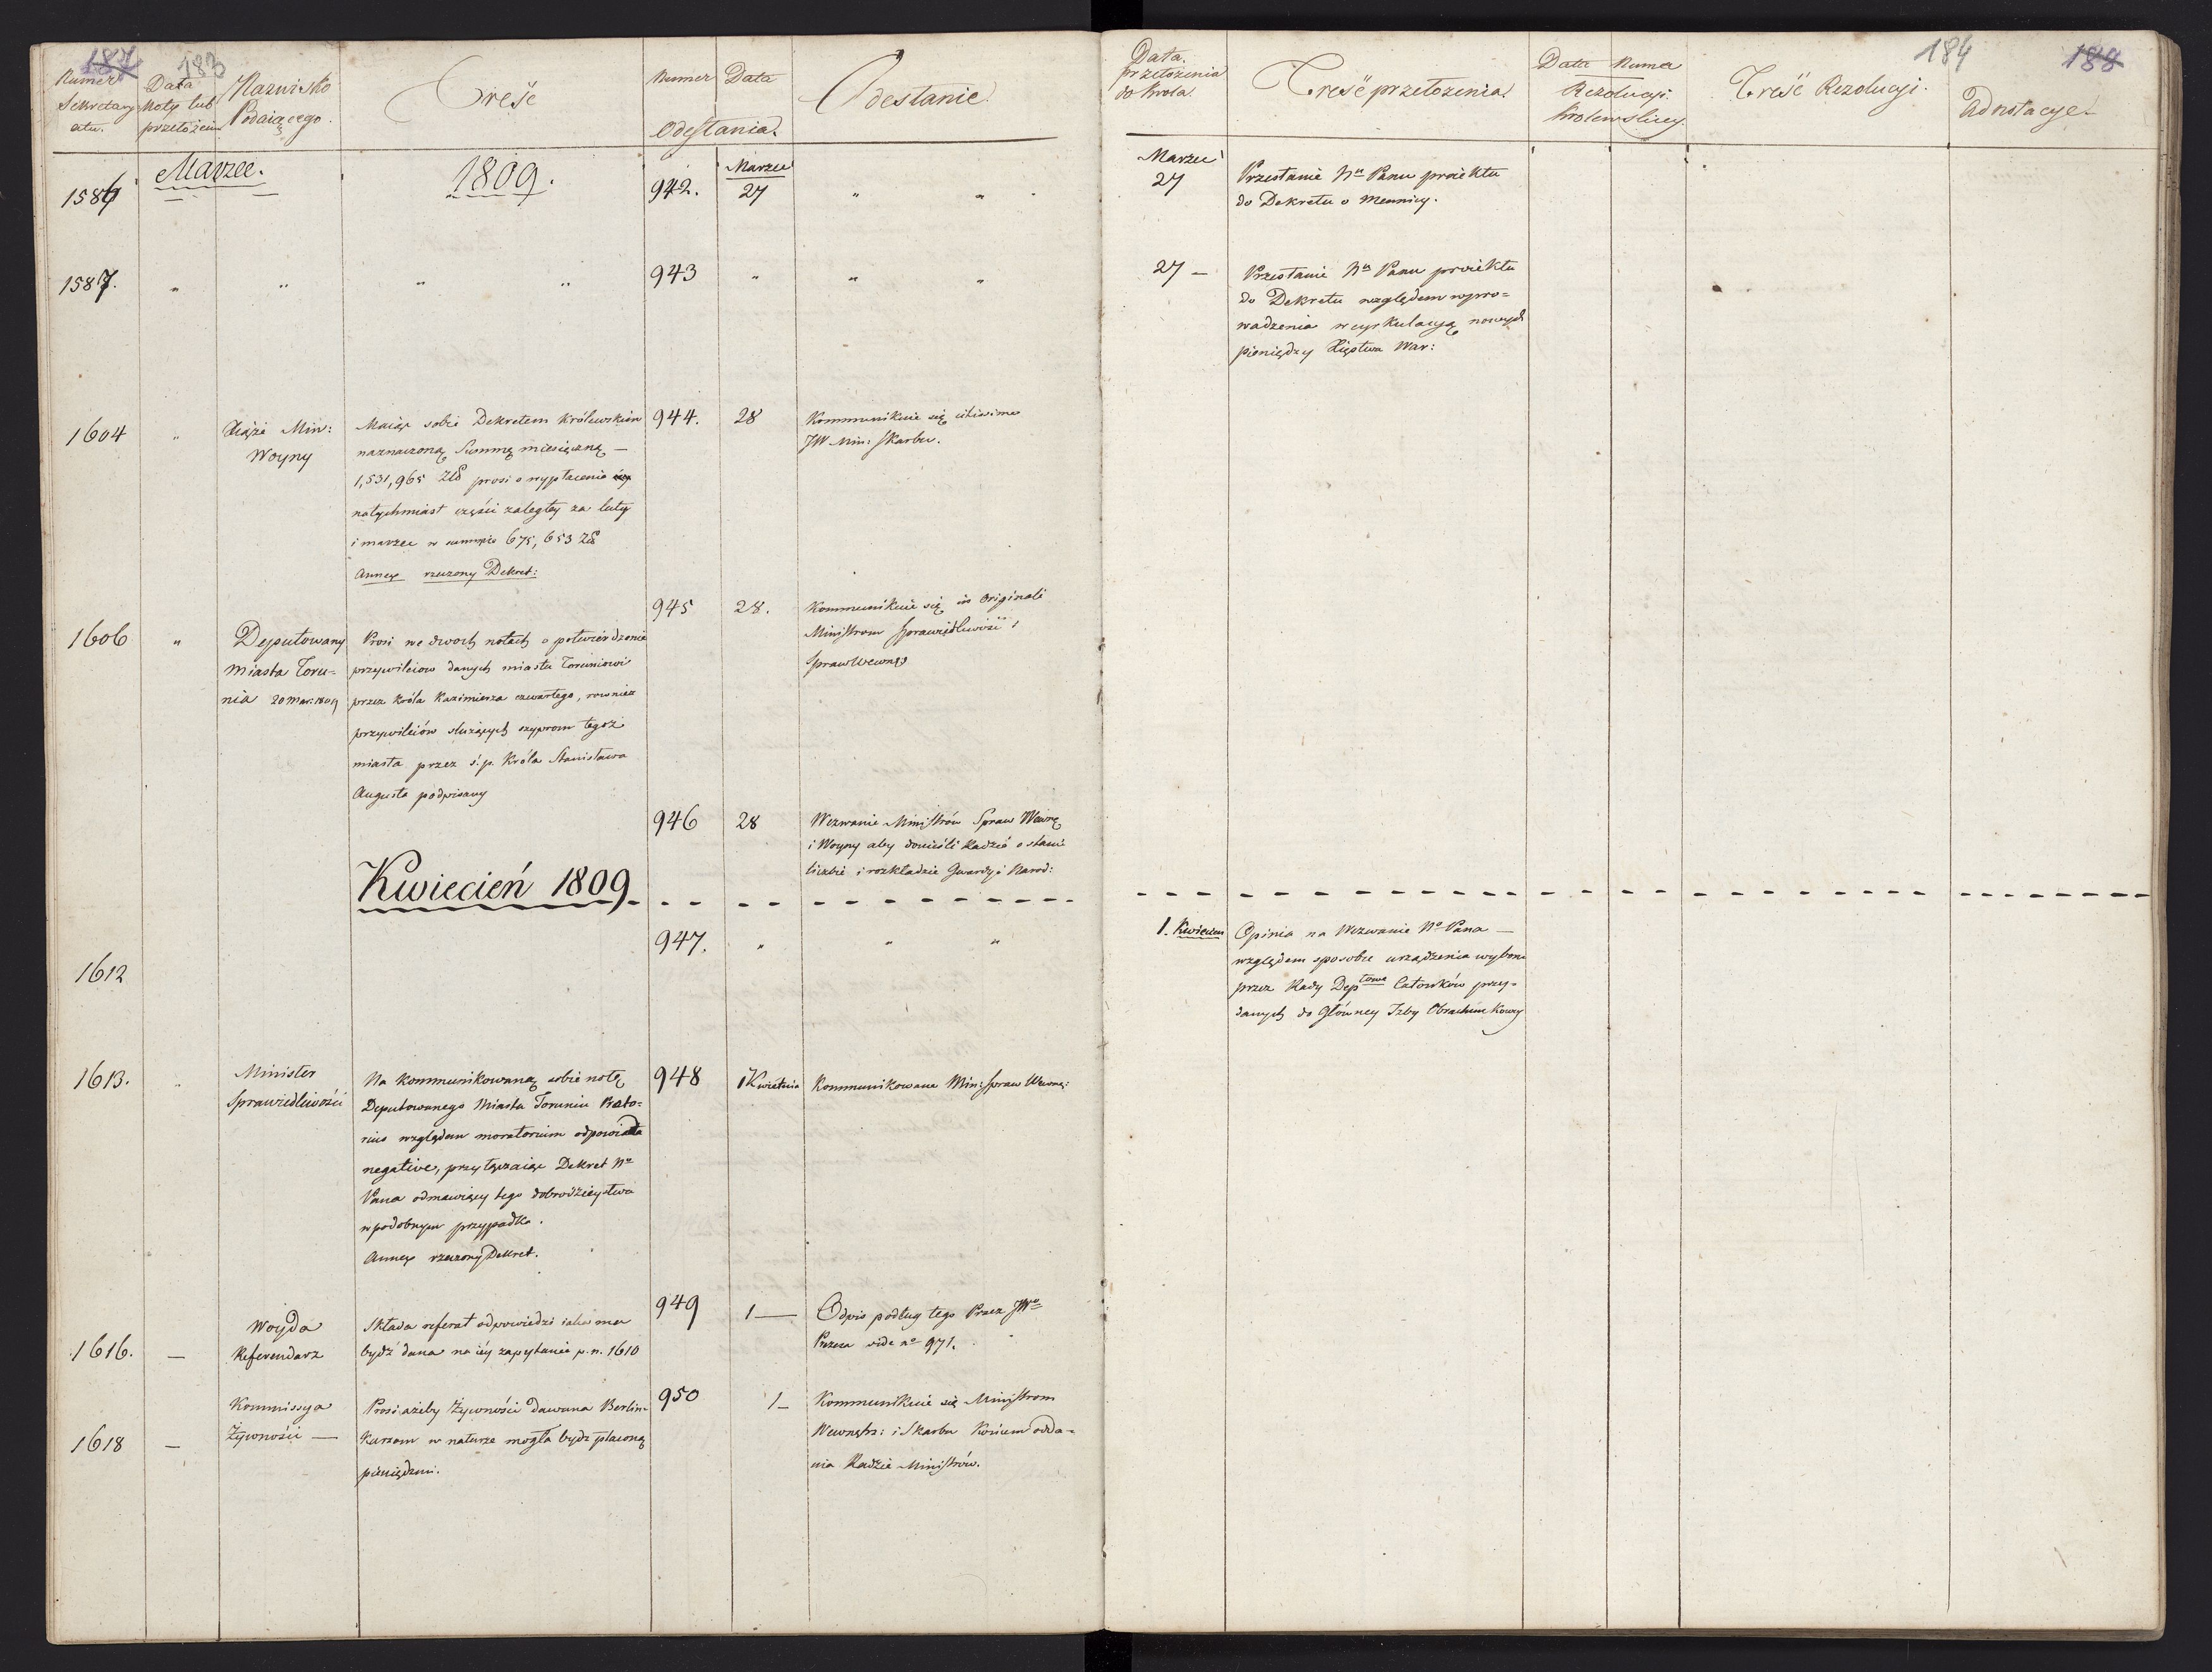 187 183
Numer Sekretaryatu.
Data Noty lub przełożenia
Nazwisko Podaiącego.
Treść
Numer Data
Odesłania.
Odesłanie.
Marzec. 1809.
1586
942.
Marzec
27 " "
1587. " " " "
943 " " "
1604 "
Xiąże Min:
Woyny
Maiąc sobie Dekretem Królewskim
naznaczoną Summę miesięczną —
1,531,965 Złł prosi o wypłacenie
natychmiast części zaległey za luty
i marzec w summie 675,653 Złł
Annex rzeczony Dekret:
944. 28
Kommunikuie się
JW Min: Skarbu.
1606 "
Deputowany
Miasta Toru=
nia 20 Mar: 1809
Prosi we dwoch notach o potwierdzenie
przywileiow danych miastu Toruniowi
przez Króla Kazimierza czwartego, rownież
przywileiów służących szyprom tegoż
miasta przez ś.p. Króla Stanisława
Augusta podpisany
945 28.
Kommunikuie się in Originali
Ministrom Sprawiedliwości i
Spraw Wewnę
946 28
Wezwanie Ministrów Spraw Wewnę
i Woyny aby donieśli Radzie o stanie
liczbie i rozkładzie Gwardyi Narod:
Kwiecień 1809
1612
947. " " "
1613. "
Minister
Sprawiedliwości
Na kommunikowaną sobie notę
Deputowanego Miasta Torunia Prato=
rius względem moratorium odpowiada
negative, przyłączaiąc Dekret No
Pana odmawiaiący tego dobrodzieystwa
w podobnym przypadku.
Annex rzeczony Dekret.
948 1 Kwietnia
Kommunikowana Min: Spraw Wewnę:
1616. —
Woyda
Referendarz
Składa referat odpowiedzi iaka ma
bydź dana na iéy zapytanie p. n. 1610
949 1 —
Odpis podług tego Przez JWo
Prezesa vide no 971.
1618 —
Kommissya
Żywności —
Prosi ażeby Żywność dawana Berlin=
karzom w naturze mogła bydź płaconą
pieniędzmi.
950 1 —
Kommunikuie się Ministrom
Wewnętrz: i Skarbu końcem odda=
nia Radzie Ministrów.
184 188
Data przełożenia do Krola.
Treść przełożenia.
Data Numer
Rezolucyi Krolewskiey.
Treść Rezolucyi.
Adnotacye
Marzec
27
Przesłanie Nu Panu proiektu
do Dekretu o Mennicy.
27 —
Przesłanie Nu Panu proiektu
do Dekretu względem wpro=
wadzenia w cyrkulacyą nowych
pieniędzy Xięstwa War:
1. Kwiecien
Opinia na Wezwanie No Pana —
względem sposobu urządzenia wyboru
przez Rady Deptowe Członków przy=
danych do Główney Izby Obrachunkowey